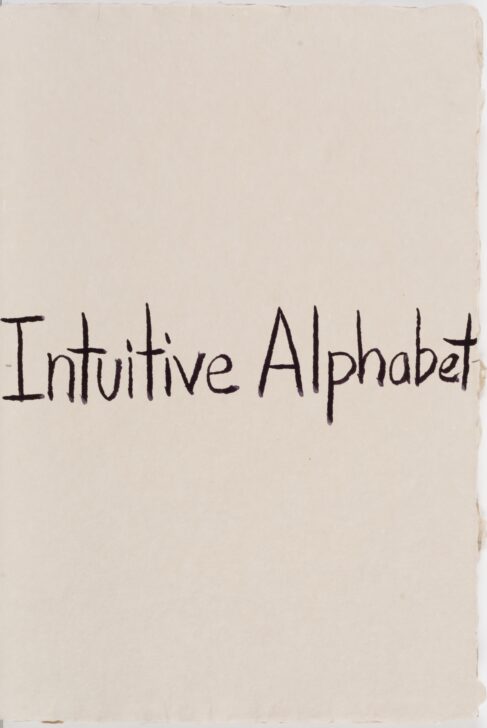 Intuitive Alphabet